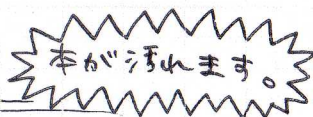 本が汚れます。